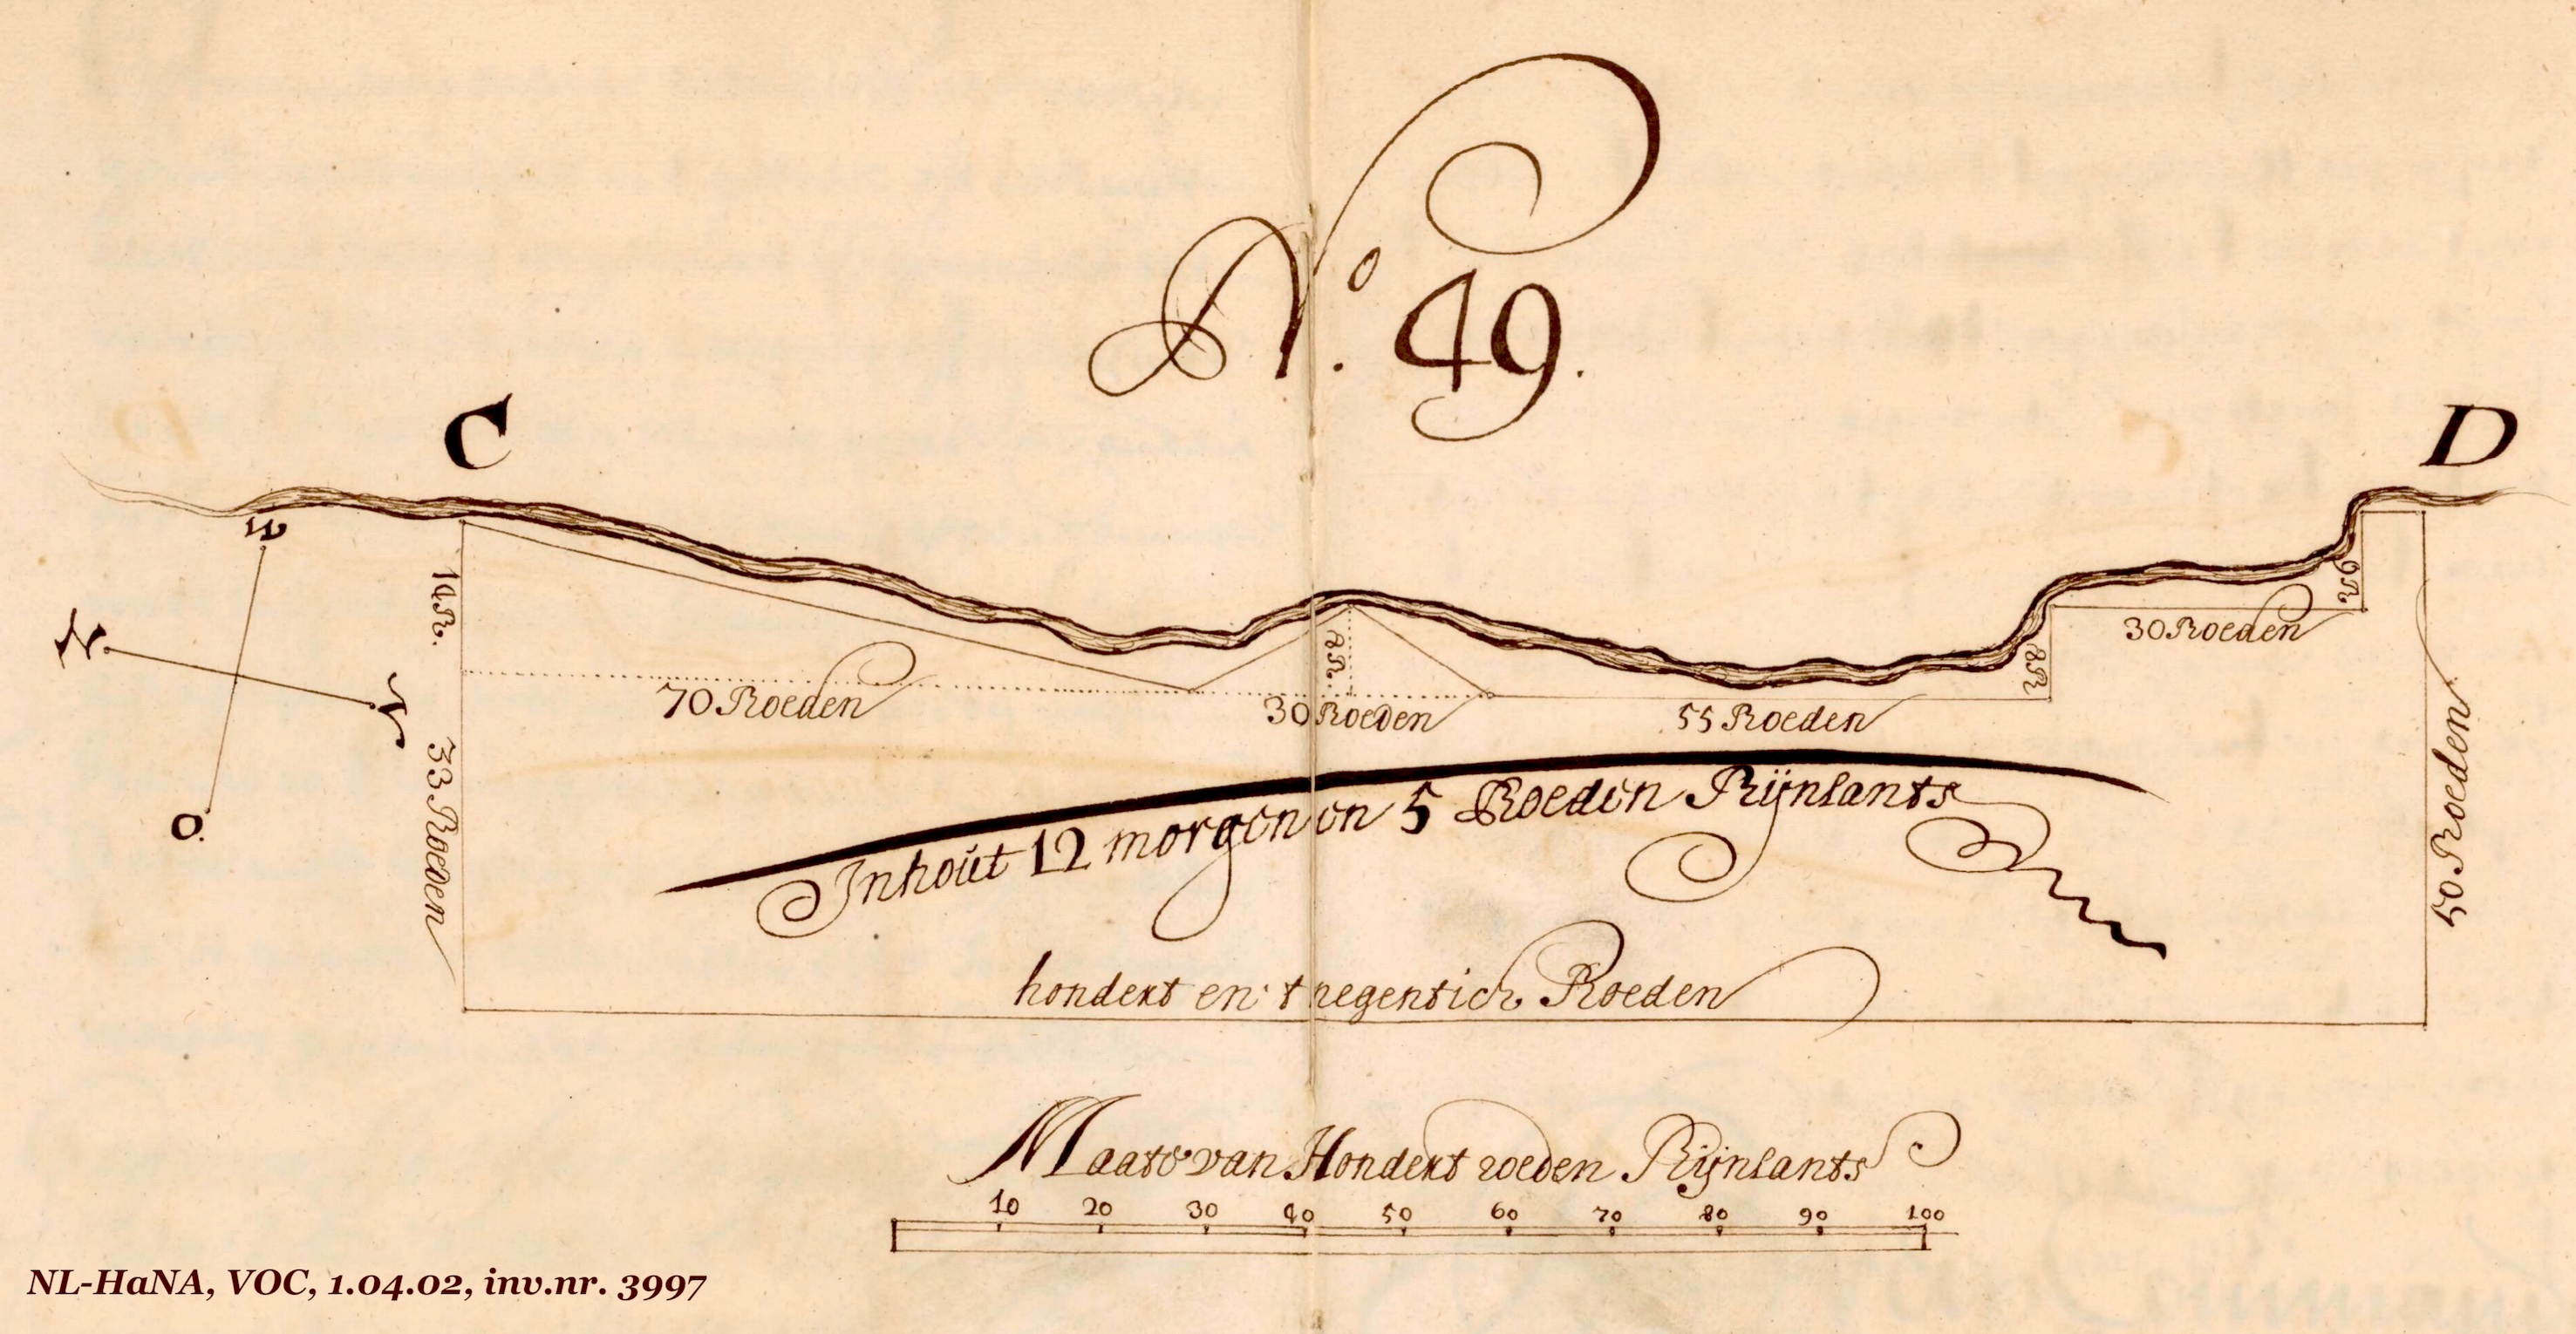 No. 49.
C
D
W
N.
Z
O.
14 R.
33 Roeden
70 Roeden
8 R.
30 Roeden
55 Roeden
8 R
30 Roeden
9 R
50 Roeden
Inhout 12 morgen en 5 Roeden Rijnlants
hondert en t negentich Roeden
Maate van Hondert roeden Rijnlants
10 20 30 40 50 60 70 80 90 100
NL-HaNA, VOC, 1.04.02, inv.nr. 3997